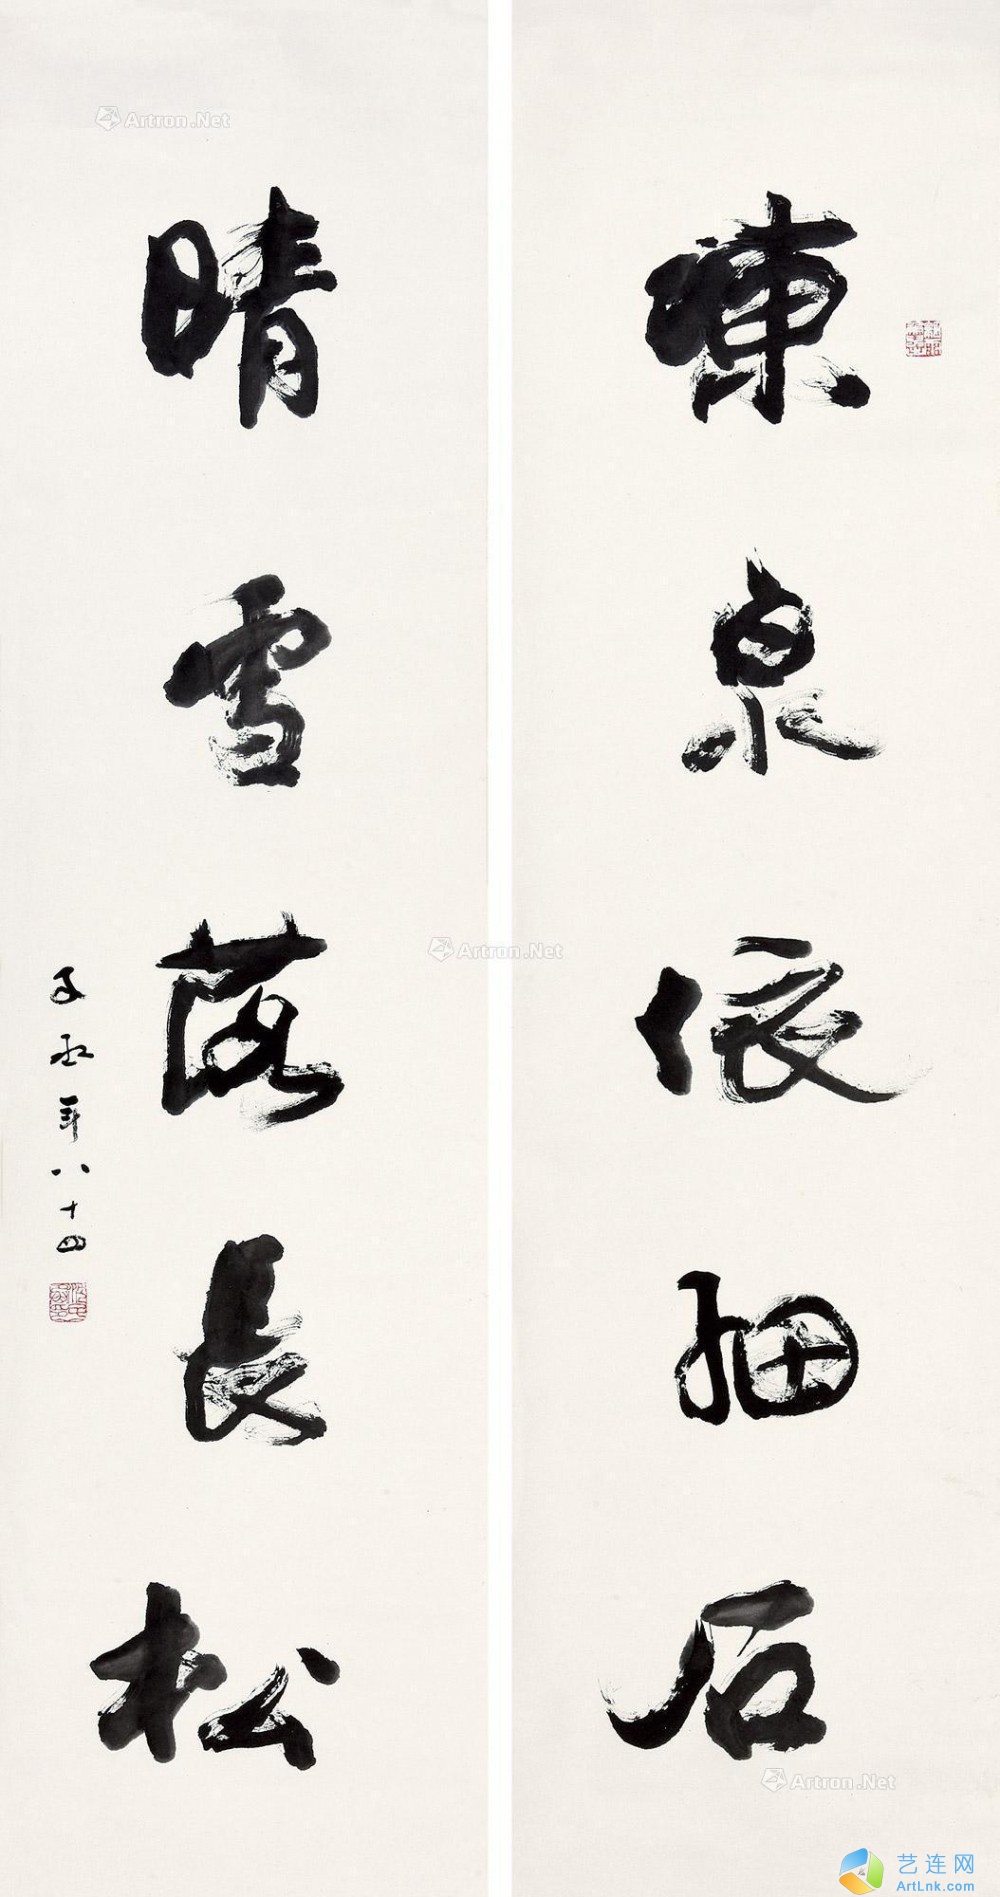 凍泉依細石
晴雪落長松
子丞年八十四
Artron.Net
Artron.Net
Artron.Net
艺连网
ArtLnk.com